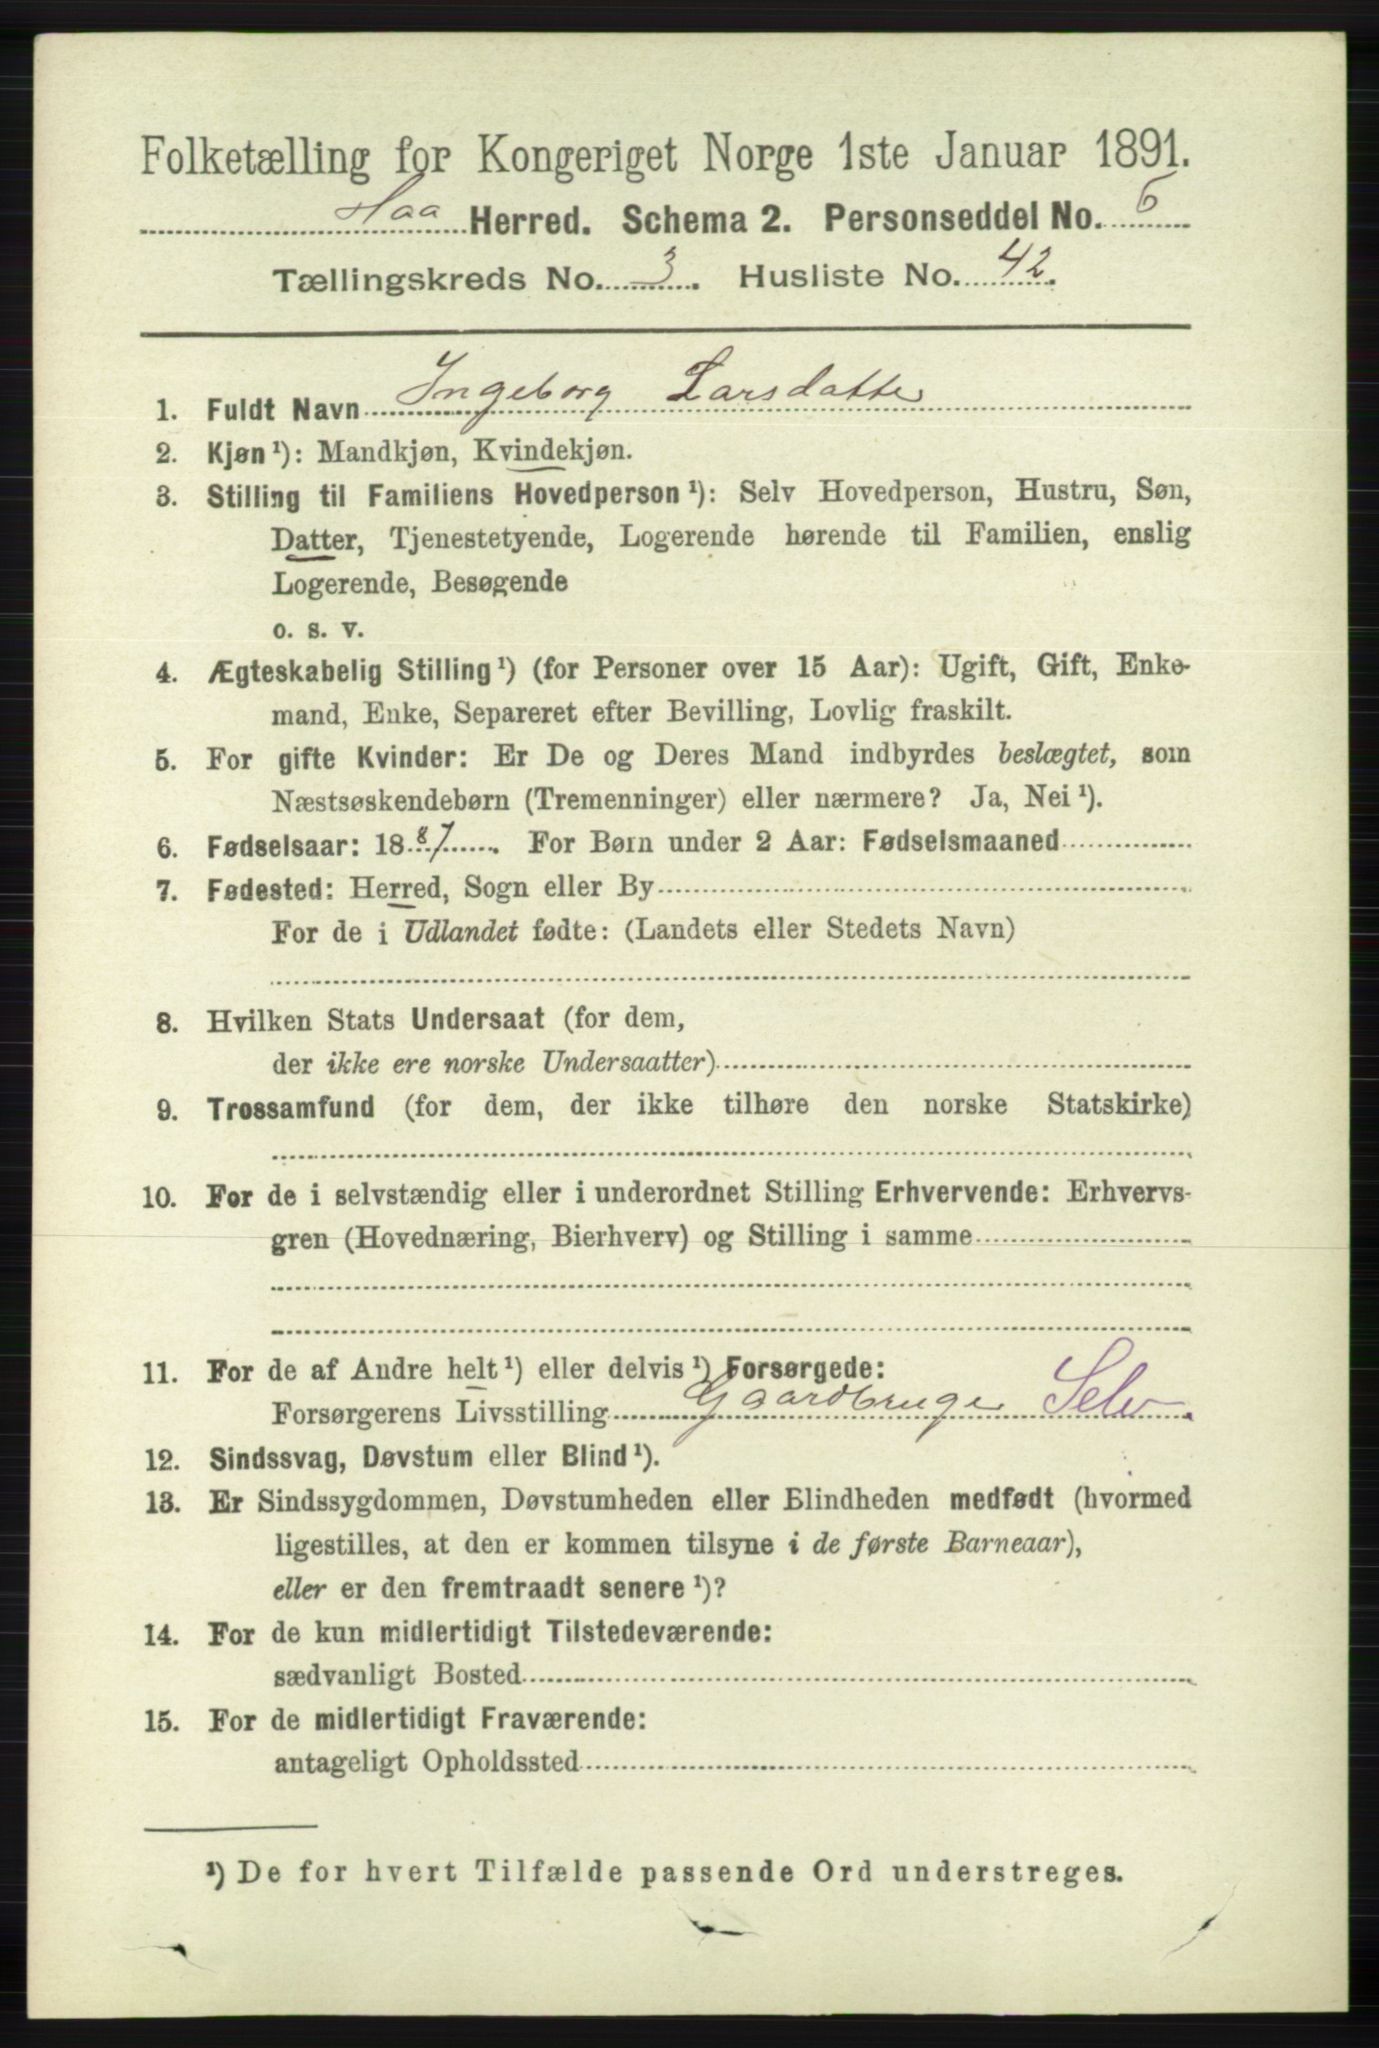 Folketælling for Kongeriget Norge 1ste Januar 1891.
Haa Herred. Schema 2. Personseddel No. 6
Tællingskreds No. 3. Husliste No. 42.
1. Fuldt Navn Ingeborg Larsdatter
2. Kjøn¹): Mandkjøn, Kvindekjøn.
3. Stilling til Familiens Hovedperson¹): Selv Hovedperson, Hustru, Søn,
Datter, Tjenestetyende, Logerende hørende til Familien, enslig
Logerende, Besøgende
o. s. v.
4. Ægteskabelig Stilling¹) (for Personer over 15 Aar): Ugift, Gift, Enke-
mand, Enke, Separeret efter Bevilling, Lovlig fraskilt.
5. For gifte Kvinder: Er De og Deres Mand indbyrdes beslægtet, som
Næstsøskendebørn (Tremenninger) eller nærmere? Ja, Nei¹).
6. Fødselsaar: 1887. For Børn under 2 Aar: Fødselsmaaned
7. Fødested: Herred, Sogn eller By
For de i Udlandet fødte: (Landets eller Stedets Navn)
8. Hvilken Stats Undersaat (for dem,
der ikke ere norske Undersaatter)
9. Trossamfund (for dem, der ikke tilhøre den norske Statskirke)
10. For de i selvstændig eller i underordnet Stilling Erhvervende: Erhvervs-
gren (Hovednæring, Bierhverv) og Stilling i samme
11. For de af Andre helt¹) eller delvis¹) Forsørgede:
Forsørgerens Livsstilling Gaardbruger Selv
12. Sindssvag, Døvstum eller Blind¹).
13. Er Sindssygdommen, Døvstumheden eller Blindheden medfødt (hvormed
ligestilles, at den er kommen tilsyne i de første Barneaar),
eller er den fremtraadt senere¹)?
14. For de kun midlertidigt Tilstedeværende:
sædvanligt Bosted
15. For de midlertidigt Fraværende:
antageligt Opholdssted
¹) De for hvert Tilfælde passende Ord understreges.